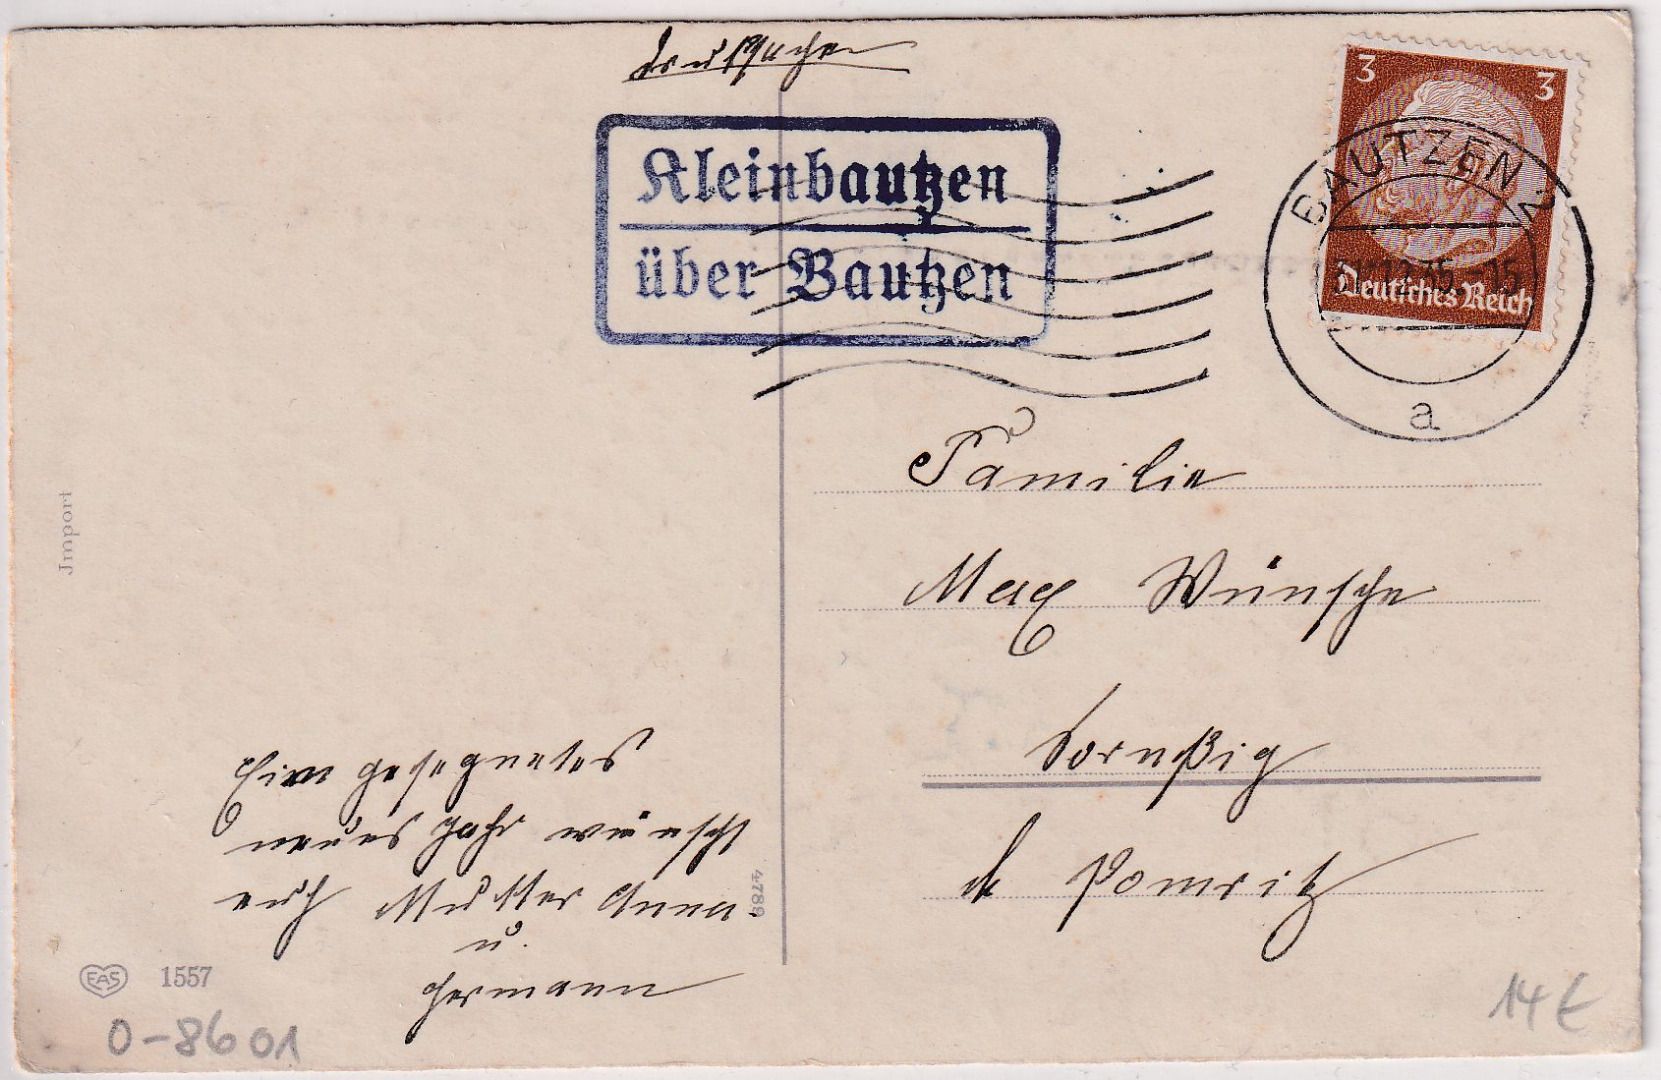 Drucksache
Kleinbautzen
über Bautzen
3 3
Deutsches Reich
BAUTZEN 2
31.12.35.-15
a
Familie
Max Wünsche
Sornßig
Pomritz
Ein gesegnetes
neues Jahr wünscht
euch Mutter Anna
u.
Hermann
Jmport
4789
EAS 1557
0-8601
14 €